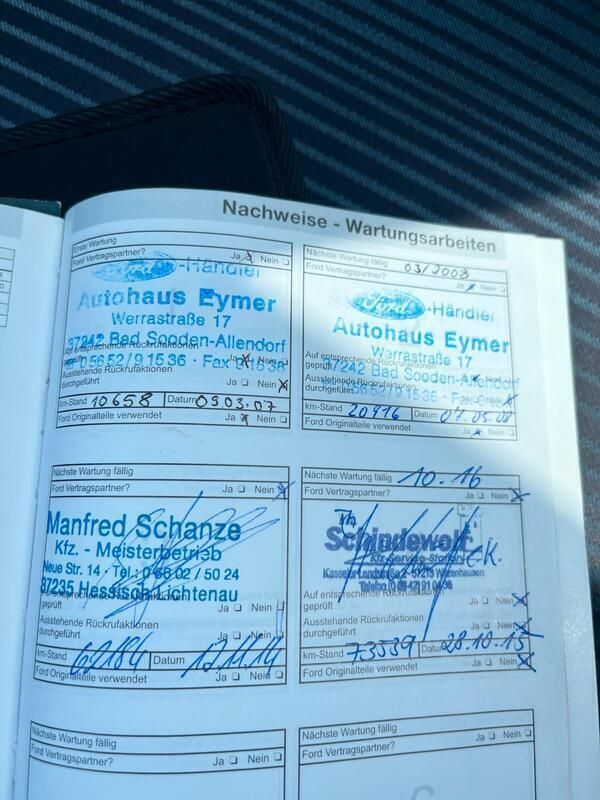 Nachweise - Wartungsarbeiten
Erste Wartung
Ford Vertragspartner? Ja Nein
Ford-Händler
Autohaus Eymer
Werrastraße 17
37242 Bad Sooden-Allendorf
Auf entsprechende Rückrufaktionen
geprüft Ja Nein
05652/91536 · Fax
Ausstehende Rückrufaktionen
durchgeführt Ja Nein
km-Stand 10658 Datum 09.03.07
Ford Originalteile verwendet Ja Nein
Nächste Wartung fällig 03/2008
Ford Vertragspartner? Ja Nein
Ford-Händler
Autohaus Eymer
Werrastraße 17
Auf entsprechende Rückrufaktionen
geprüft
37242 Bad Sooden-Allendorf
Ausstehende Rückrufaktionen
05652/91536
durchgeführt Nein
km-Stand 20916 Datum 07.05.08
Ford Originalteile verwendet Ja Nein
Nächste Wartung fällig
Ford Vertragspartner? Ja Nein
Manfred Schanze
Kfz. - Meisterbetrieb
Neue Str. 14 · Tel.: 0 56 02 / 50 24
37235 Hessisch Lichtenau
Auf entsprechende Rückrufaktionen
geprüft Ja Nein
Ausstehende Rückrufaktionen
durchgeführt Ja Nein
km-Stand 62184 Datum 17.11.14
Ford Originalteile verwendet Ja Nein
Nächste Wartung fällig 10.16
Ford Vertragspartner? Ja Nein
Schindewolf e.K.
Kfz-Service-Station
Kasseler Landstraße 2 - 37213 Witzenhausen
Telefon
Auf entsprechende Rückrufaktionen
geprüft Ja Nein
Ausstehende Rückrufaktionen
durchgeführt Ja Nein
km-Stand 73539 Datum 28.10.15
Ford Originalteile verwendet Ja Nein
Nächste Wartung fällig
Ford Vertragspartner? Ja Nein
Nächste Wartung fällig
Ford Vertragspartner? Ja Nein